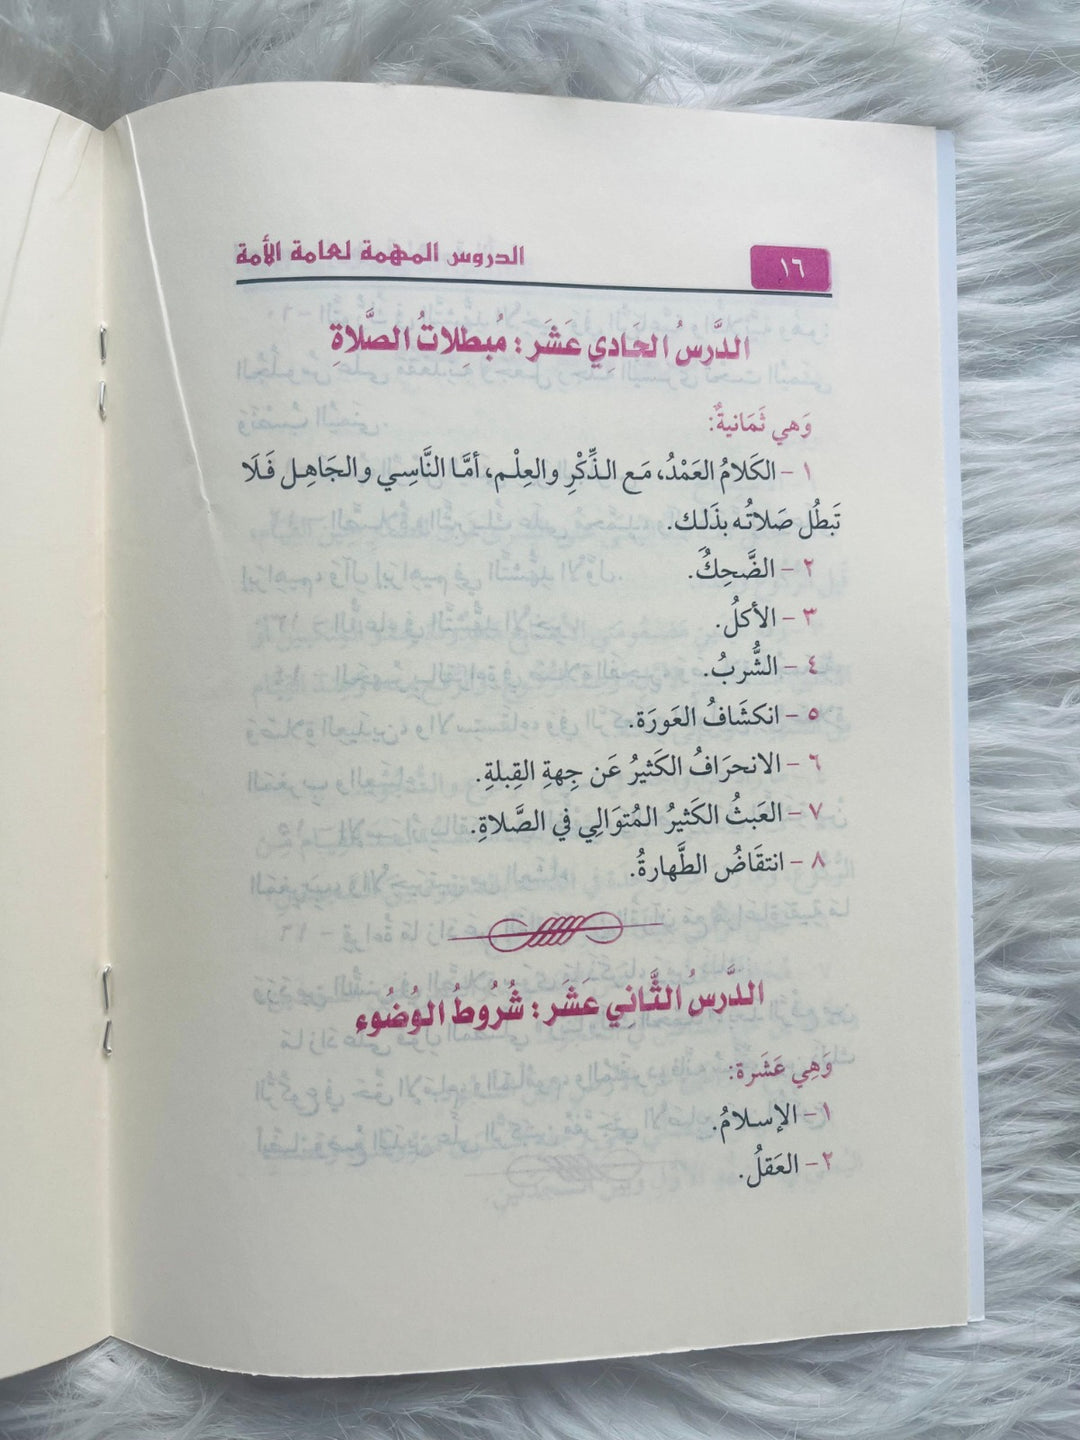 ١٦
الدروس المهمة لعامة الأمة
الدَّرسُ الحَادِي عَشَر : مُبطِلاتُ الصَّلاةِ
وَهي ثَمَانيةٌ:
١ – الكَلامُ العَمْدُ، مَع الذِّكْرِ والعِلْم، أمَّا النَّاسِي والجَاهِل فَلَا
تَبطُل صَلاتُه بذَلك.
٢ – الضَّحِكُ.
٣ – الأكلُ.
٤ – الشُّربُ.
٥ – انكشَافُ العَورَة.
٦ – الانحرَافُ الكَثيرُ عَن جِهةِ القِبلةِ.
٧ – العَبثُ الكَثيرُ المُتوَالِي في الصَّلاةِ.
٨ – انتقَاضُ الطَّهارةُ.
الدَّرسُ الثَّانِي عَشَر : شُرُوطُ الوُضُوء
وَهِي عَشَرة:
١ – الإسلامُ.
٢ – العَقلُ.